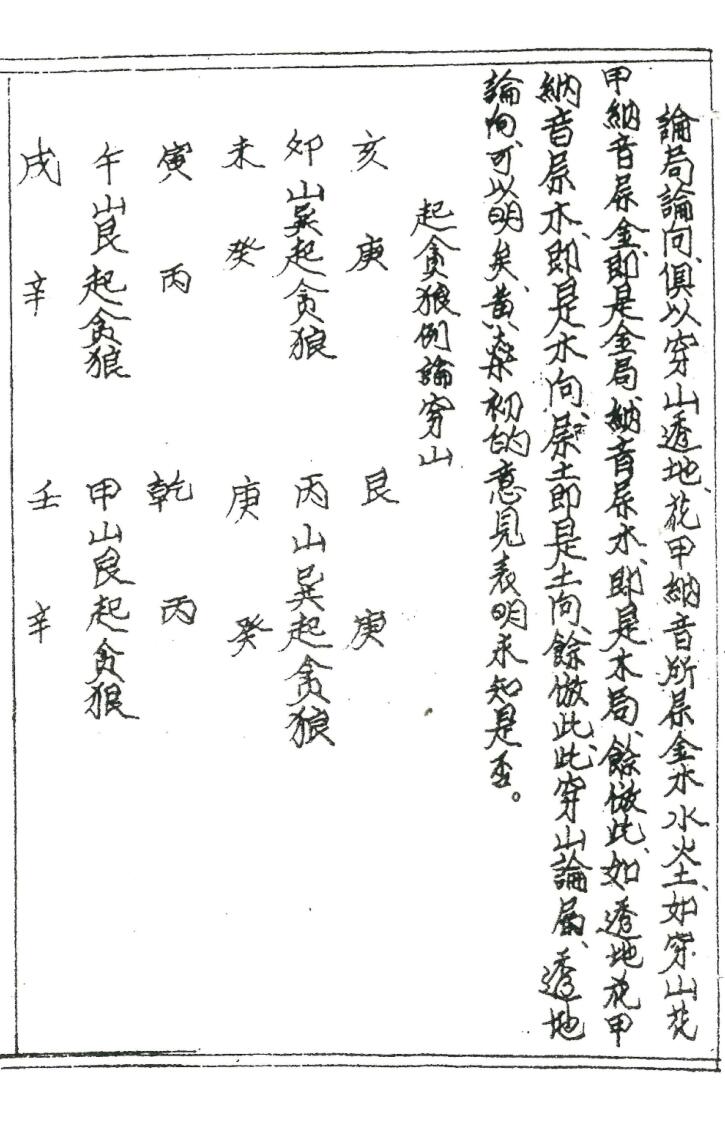 論局論向、俱以穿山透地、花甲納音所屬金木水火土、如穿山花
甲納音屬金、即是金局、納音屬木、即是木局、餘倣此、如透地花甲
納音屬水、即是水向、屬土即是土向、餘倣此、此穿山論局、透地
論向、可以明矣、黃榮初的意見表明未知是否。
起貪狼例論穿山
亥 庚 艮 庚
卯山巽起貪狼 丙山巽起貪狼
未 癸 庚 癸
寅 丙 乾 丙
午山艮起貪狼 甲山艮起貪狼
戌 辛 壬 辛